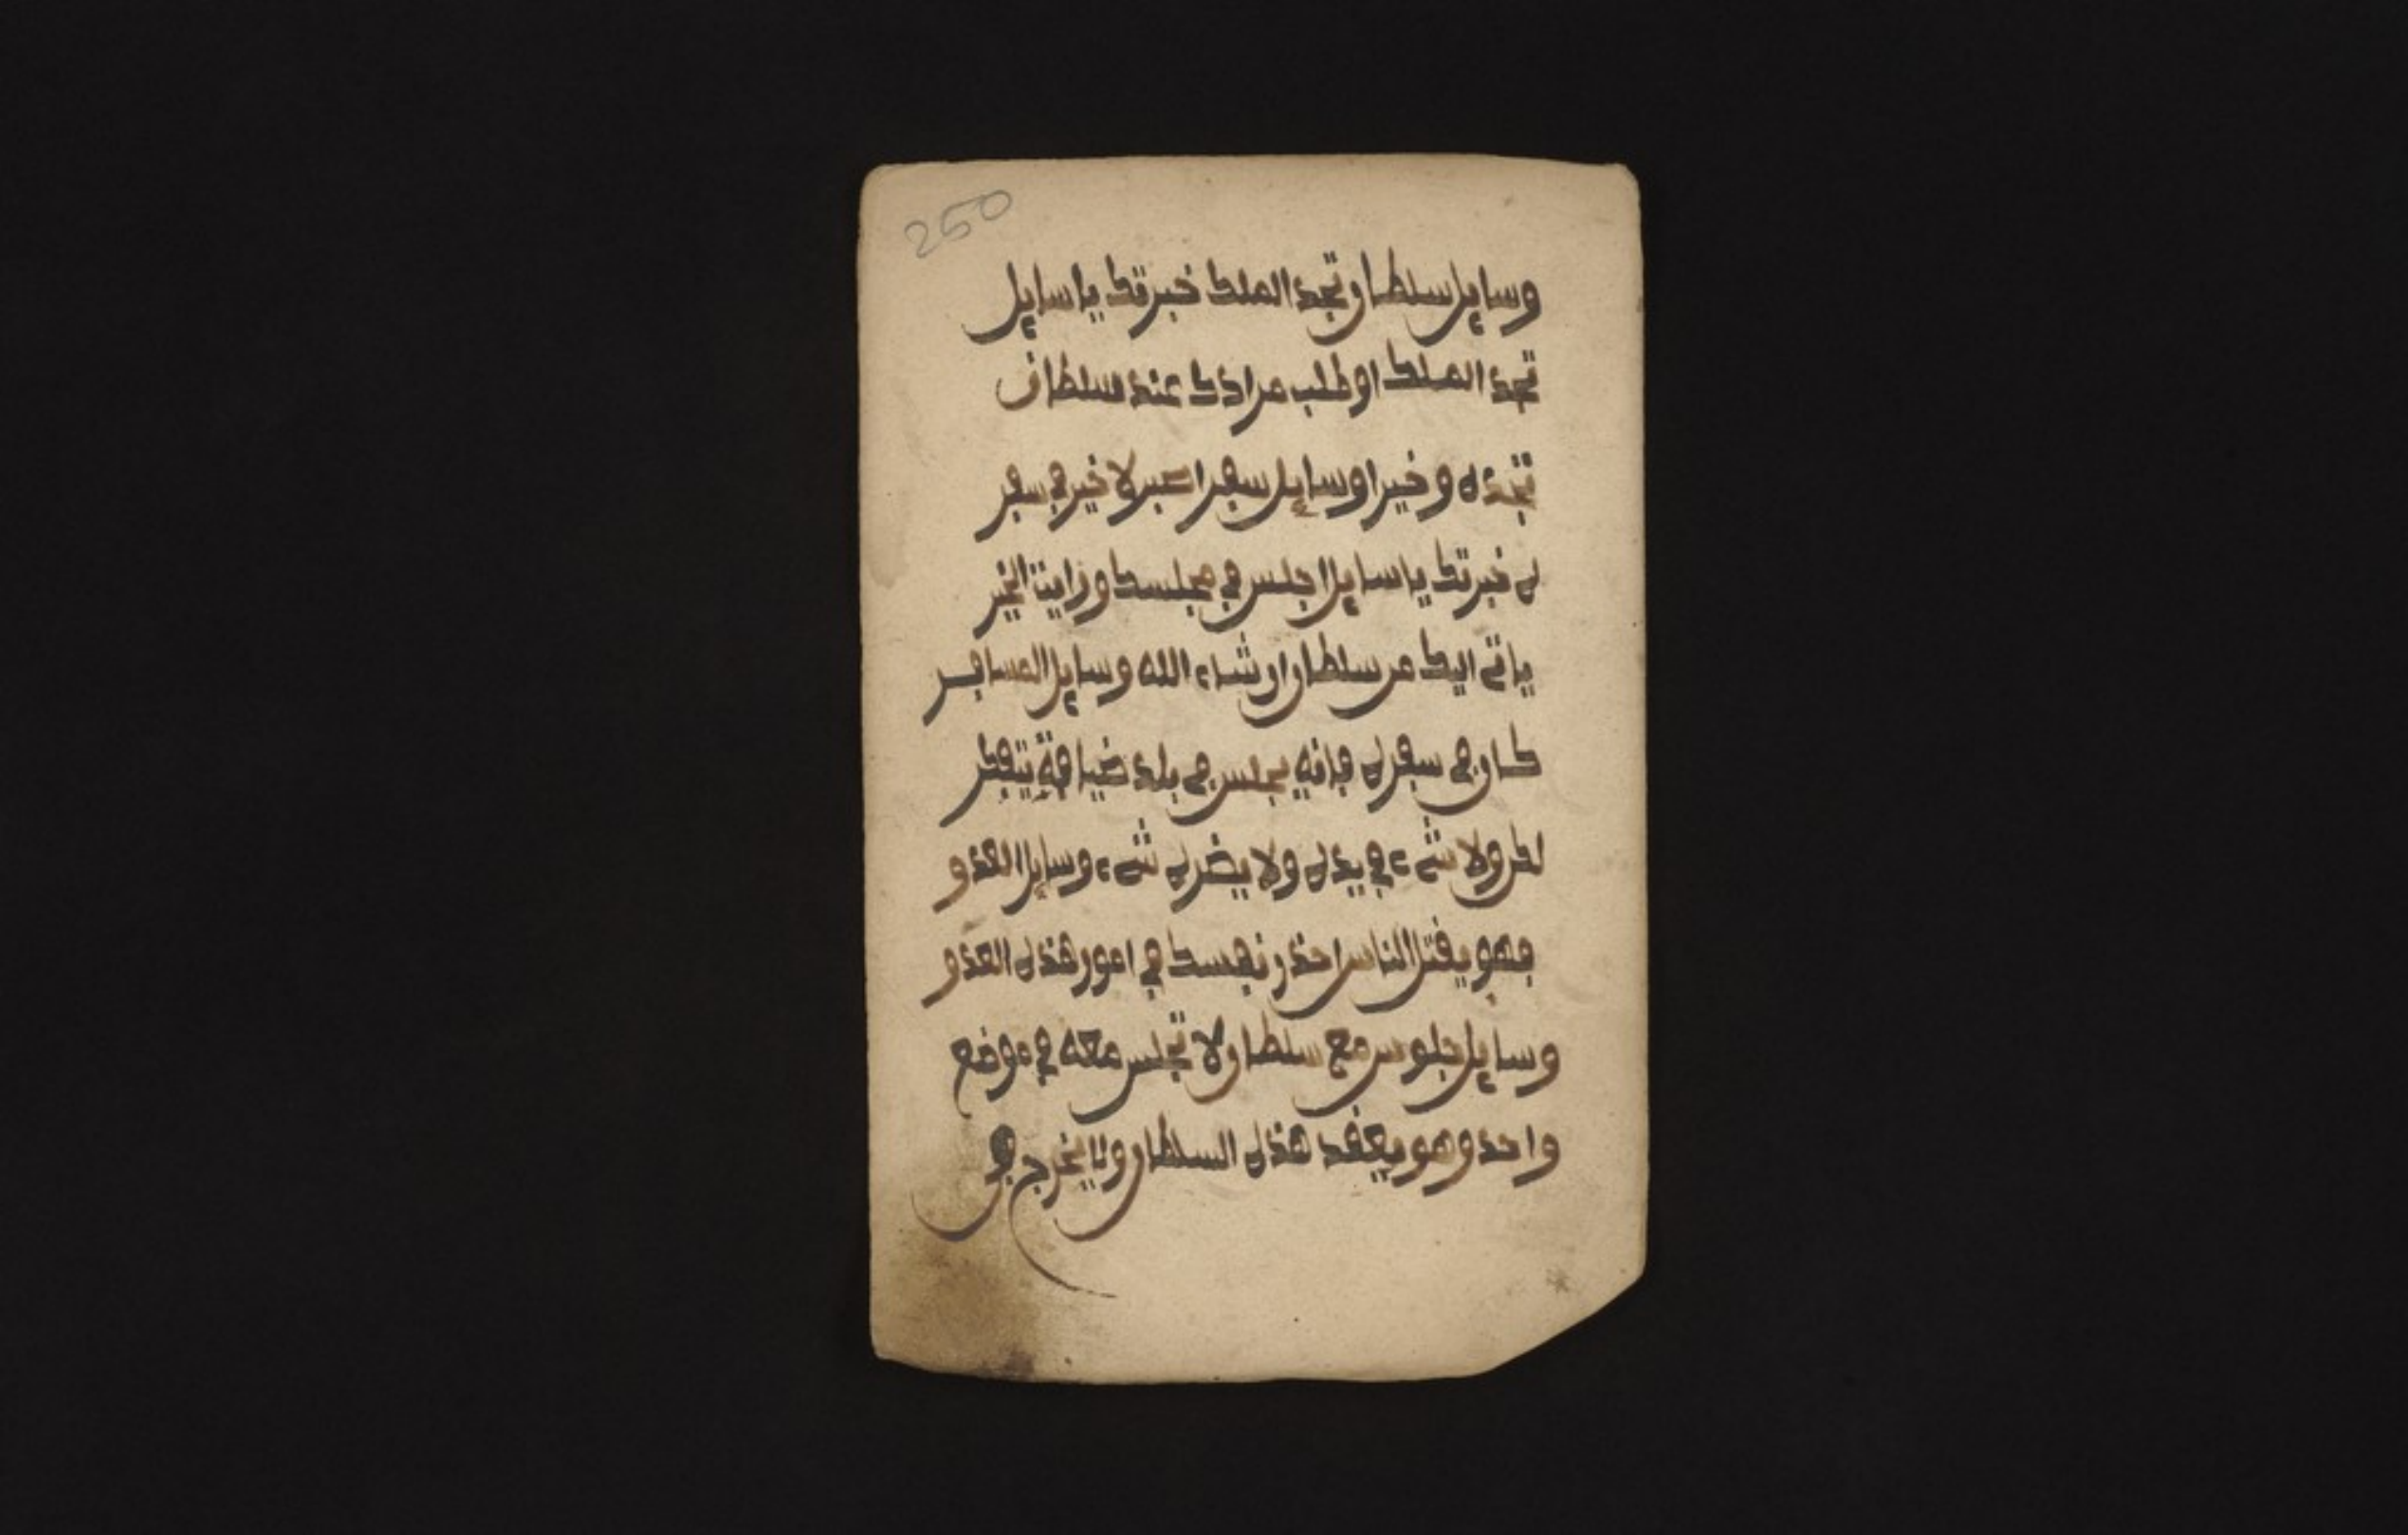 250
وسايل سلطان تجد الملك خبرتك يا سايل
تجد الملك او طلب مرادك عند سلطان
تجده و خيرا وسايل سفر اصبر لا خير في سفر
ه خبرتك يا سايل اجلس في مجلسك ورايت الخير
ياتي اليك من سلطان ان شاء الله وسايل المسافر
كان في سفره فانه يجلس في بلد ضيافة
ولا شيء في يده ولا يضره شيء وسايل العدو
فهو يقتل الناس احذر نفسك في امور هذه العدو
وسايل جلوس مع سلطان لا تجلس معه في موضع
واحد وهو يعقد هذه السلطان يخرج